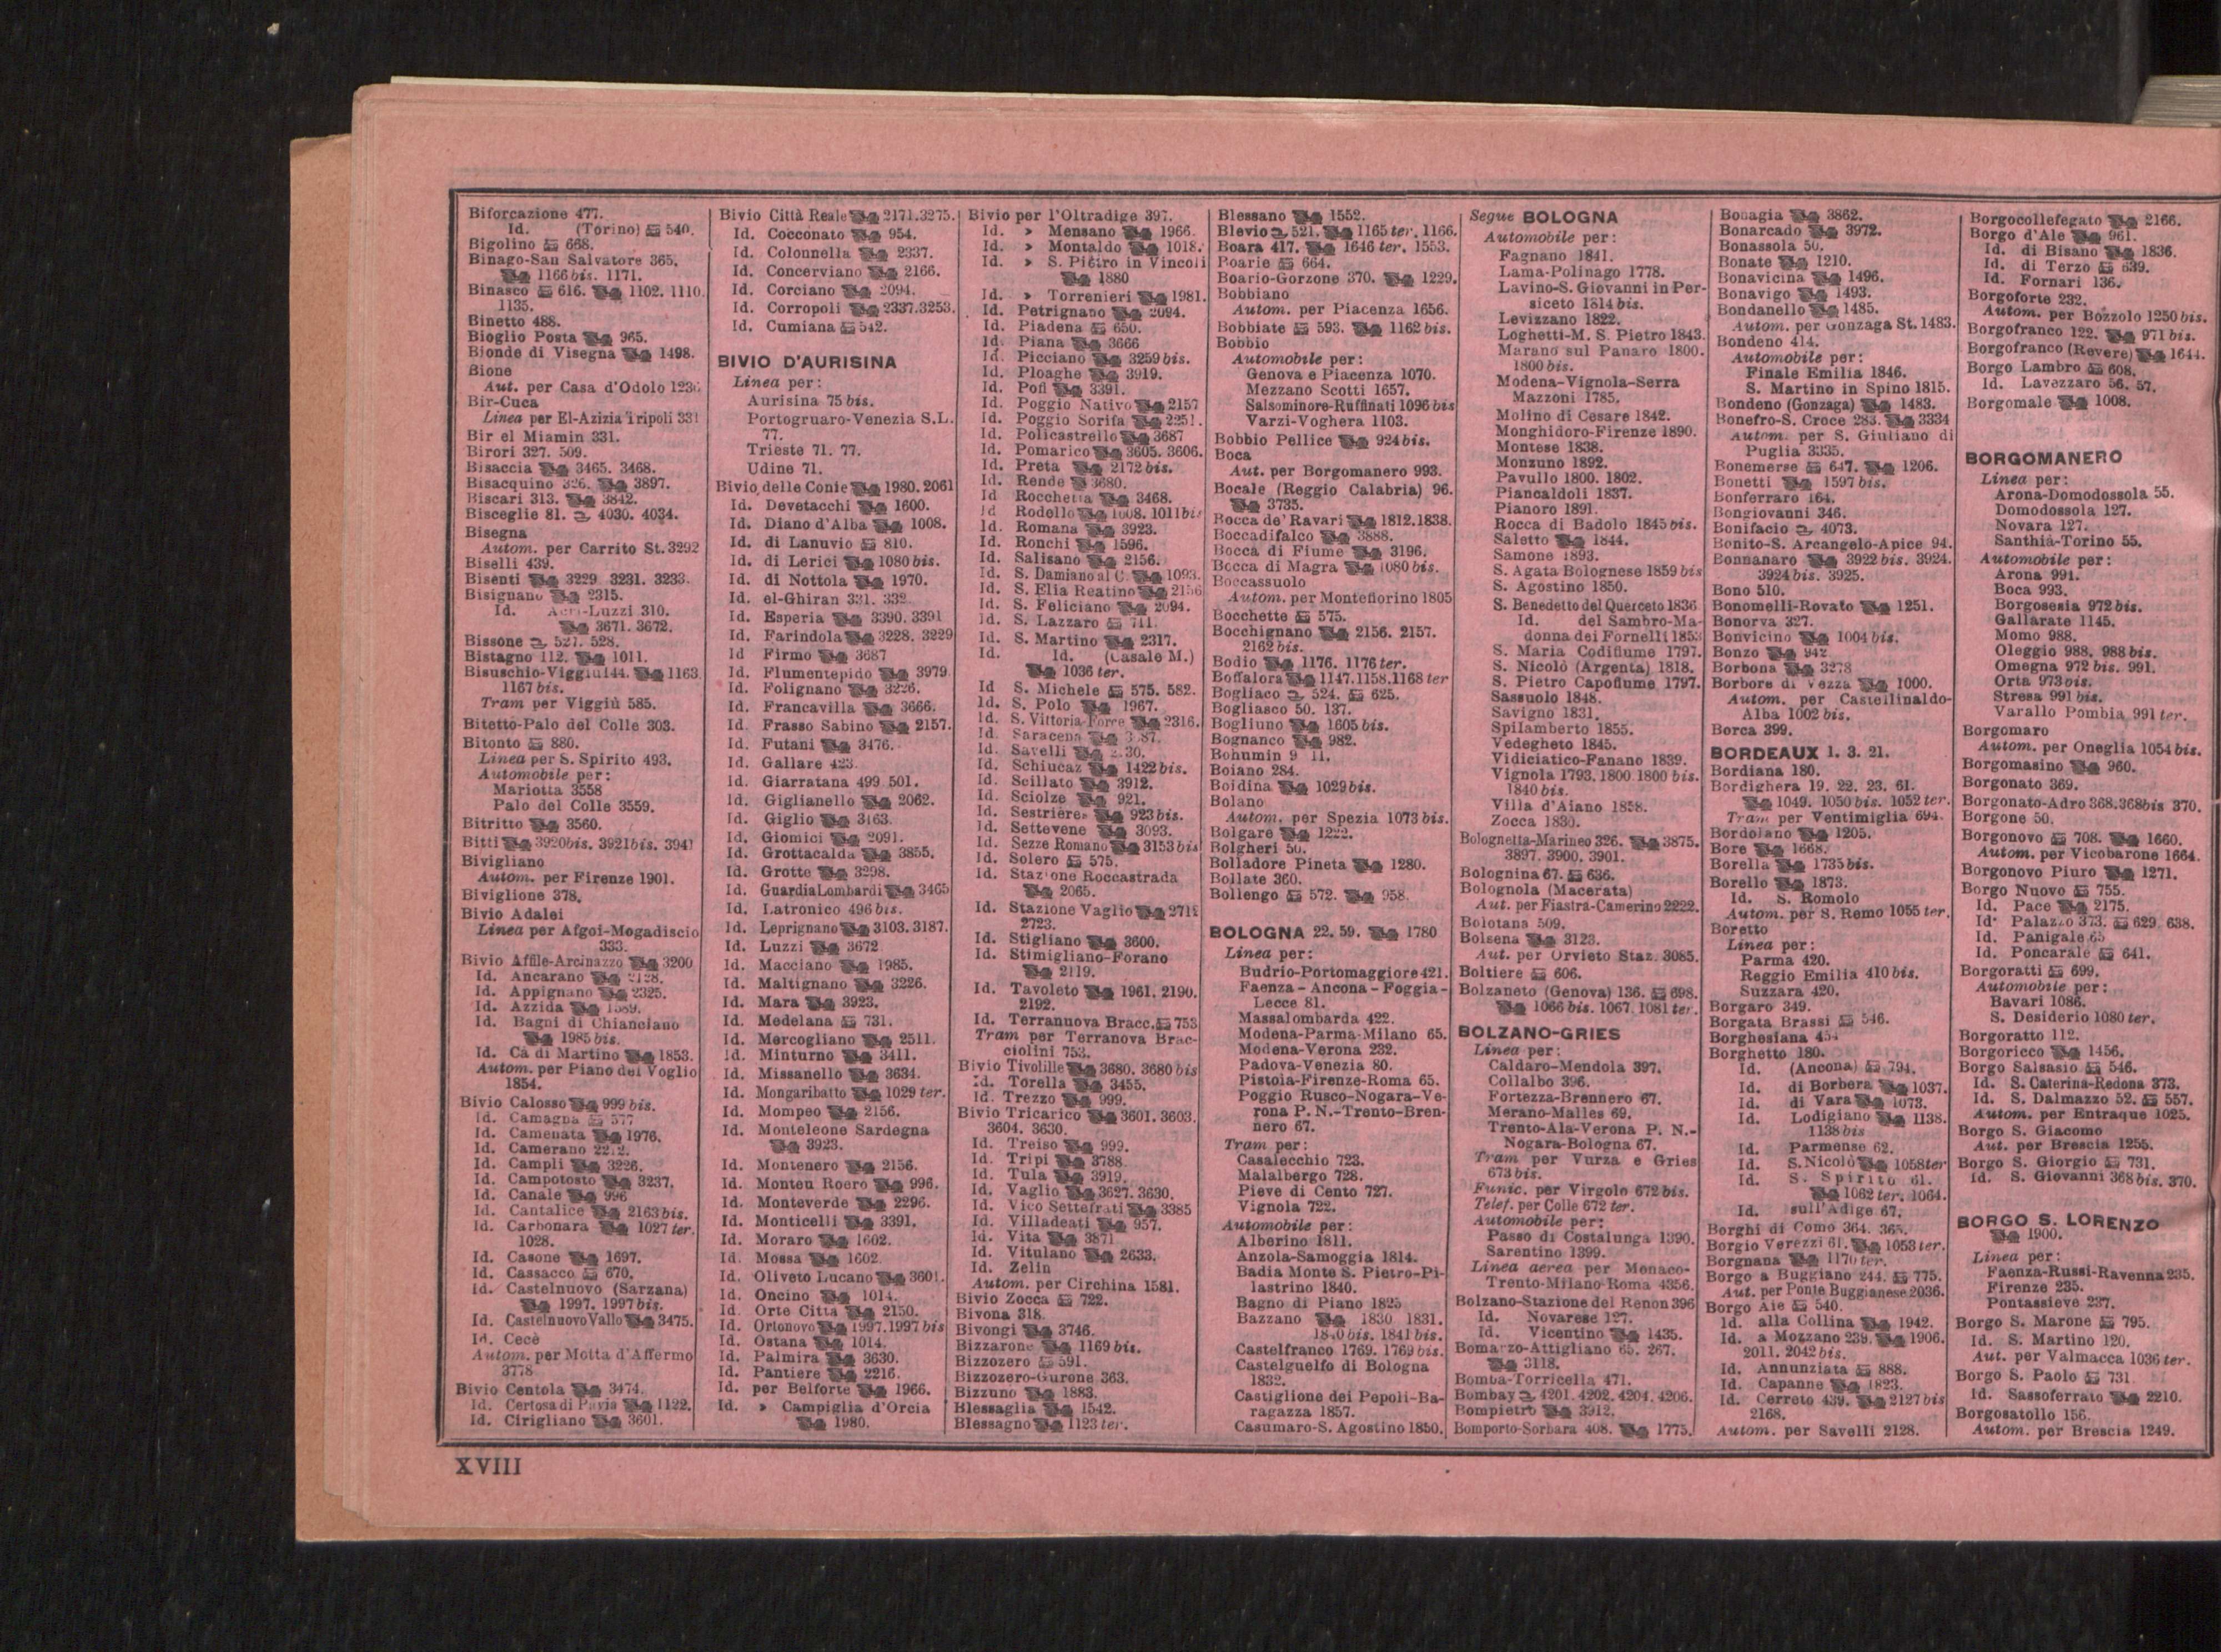 Biforcazione 477.
Id. (Torino) 540.
Bigolino 668.
Binago-San Salvatore 365.
1166 bis. 1171.
Binasco 616. 1102. 1110.
1135.
Binetto 488.
Bioglio Posta 965.
Bionde di Visegna 1498.
Bione
Aut. per Casa d'Odolo
Bir-Cuca
Linea per El-Azizia Tripoli 331
Bir el Miamin 331.
Birori 327. 509.
Bisaccia 3465. 3468.
Bisacquino 326. 3897.
Biscari 313. 3842.
Bisceglie 81. 4030. 4034.
Bisegna
Autom. per Carrito St. 3292
Biselli 439.
Bisenti 3229 3231. 3233.
Bisignano 2315.
Id. Acri-Luzzi 310.
3671. 3672.
Bissone 527. 528.
Bistagno 112. 1011.
Bisuschio-Viggiù 144. 1163
1167 bis.
Tram per Viggiù 585.
Bitetto-Palo del Colle 303.
Bitonto 880.
Linea per S. Spirito 493.
Automobile per:
Mariotta 3558
Palo del Colle 3559.
Bitritto 3560.
Bitti 3920bis. 3921bis. 3941
Bivigliano
Autom. per Firenze 1901.
Biviglione 378.
Bivio Adalei
Linea per Afgoi-Mogadiscio
333.
Bivio Affile-Arcinazzo 3200
Id. Ancarano
Id. Appignano 2325.
Id. Azzida 1589.
Id. Bagni di Chianciano
1985 bis.
Id. Cà di Martino 1853.
Autom. per Piano del Voglio
1854.
Bivio Calosso 999 bis.
Id. Camagna 577
Id. Camenata 1976.
Id. Camerano
Id. Campli 3226.
Id. Campotosto 3237.
Id. Canale 996
Id. Cantalice 2163 bis.
Id. Carbonara 1027 ter.
1028.
Id. Casone 1697.
Id. Cassacco 670.
Id. Castelnuovo (Sarzana)
1997. 1997 bis.
Id. Castelnuovo Vallo 3475.
Id. Cecè
Autom. per Motta d'Affermo
3778
Bivio Centola 3474.
Id. Certosa di Pavia 1122.
Id. Cirigliano 3601.
Bivio Città Reale 2171. 3275.
Id. Cocconato 954.
Id. Colonnella 2337.
Id. Concerviano 2166.
Id. Corciano 2094.
Id. Corropoli 2337.3253.
Id. Cumiana 542.
BIVIO D'AURISINA
Linea per:
Aurisina 75 bis.
Portogruaro-Venezia S.L.
77.
Trieste 71. 77.
Udine 71.
Bivio delle Conie 1980. 2061
Id. Devetacchi 1600.
Id. Diano d'Alba 1008.
Id. di Lanuvio 810.
Id. di Lerici 1080 bis.
Id. di Nottola 1970.
Id. el-Ghiran 331. 332.
Id. Esperia 3390. 3391
Id. Farindola 3228. 3229
Id Firmo 3687
Id. Flumentepido 3979
Id. Folignano 3226.
Id. Francavilla 3666.
Id. Frasso Sabino 2157.
Id. Futani 3476.
Id. Gallare 423
Id. Giarratana 499 501.
Id. Giglianello 2062.
Id. Giglio 3163.
Id. Giomici 2091.
Id. Grottacalda 3855.
Id. Grotte 3298.
Id. Guardia Lombardi 3465
Id. Latronico 496 bis.
Id. Leprignano 3103. 3187.
Id. Luzzi 3672
Id. Macciano 1985.
Id. Maltignano 3226.
Id. Mara 3923.
Id. Medelana 731.
Id. Mercogliano 2511.
Id. Minturno 3411.
Id. Missanello 3634.
Id. Mongaribatto 1029 ter.
Id. Mompeo 2156.
Id. Monteleone Sardegna
3923.
Id. Montenero 2156.
Id. Monteu Roero 996.
Id. Monteverde 2296.
Id. Monticelli 3391.
Id. Moraro 1602.
Id. Mossa 1602
Id. Oliveto Lucano 3601.
Id. Oncino 1014.
Id. Orte Città 2150.
Id. Ortonovo 1997.1997 bis
Id. Ostana 1014.
Id. Palmira 3630.
Id. Pantiere 2216.
Id. per Belforte 1966.
Id. » Campiglia d'Orcia
1980.
Bivio per l'Oltradige 397.
Id. » Mensano 1966.
Id. » Montaldo 1018.
Id. » S. Pietro in Vincoli
1880
Id. » Torrenieri 1981.
Id. Petrignano 2094.
Id. Piadena 650.
Id. Piana 3666
Id. Picciano 3259 bis.
Id. Ploaghe 3919.
Id. Pofi 3391.
Id. Poggio Nativo 2157
Id. Poggio Sorifa 2251.
Id. Policastrello 3687
Id. Pomarico 3605. 3606.
Id. Preta 2172 bis.
Id. Rende 3680.
Id Rocchetta 3468.
Id Rodello 1008. 1011 bis
Id. Romana 3923.
Id. Ronchi 1596.
Id. Salisano 2156.
Id. S. Damiano al C. 1093.
Id. S. Elia Reatino 2156
Id. S. Feliciano 2094.
Id. S. Lazzaro 711.
Id. S. Martino 2317.
Id. Id. (Casale M.)
1036 ter.
Id S. Michele 575. 582.
Id. S. Polo 1967.
Id. S. Vittoria-Force 2316.
Id. Saracena
Id. Savelli
Id. Schiucaz 1422 bis.
Id. Scillato 3912.
Id. Sciolze 921.
Id. Sestrières 923 bis.
Id. Settevene 3093.
Id. Sezze Romano 3153 bis
Id. Solero 575.
Id. Stazione Roccastrada
2065.
Id. Stazione Vaglio 2712
2723.
Id. Stigliano 3600.
Id. Stimigliano-Forano
2119.
Id. Tavoleto 1961. 2190.
2192.
Id. Terranuova Bracc. 753
Tram per Terranova Brac-
ciolini 753.
Bivio Tivolille 3680. 3680 bis
Id. Torella 3455.
Id. Trezzo 999.
Bivio Tricarico 3601. 3603.
3604. 3630.
Id. Treiso 999.
Id. Tripi 3788.
Id. Tula 3919.
Id. Vaglio 3627. 3630.
Id. Vico Settefrati 3385
Id. Villadeati 957.
Id. Vita 3871
Id. Vitulano 2633.
Id. Zelin
Autom. per Circhina 1581.
Bivio Zocca 722.
Bivona 318.
Bivongi 3746.
Bizzarone 1169 bis.
Bizzozero 591.
Bizzozero-Gurone 363.
Bizzuno 1883.
Blessaglia 1542.
Blessagno 1123 ter.
Blessano 1552.
Blevio 521. 1165 ter. 1166.
Boara 417. 1646 ter. 1553.
Boarie 664.
Boario-Gorzone 370. 1229.
Bobbiano
Autom. per Piacenza 1656.
Bobbiate 593. 1162 bis.
Bobbio
Automobile per:
Genova e Piacenza 1070.
Mezzano Scotti 1657.
Salsominore-Ruffinati 1096 bis
Varzi-Voghera 1103.
Bobbio Pellice 924 bis.
Boca
Aut. per Borgomanero 993.
Bocale (Reggio Calabria) 96.
3735.
Bocca de' Ravari 1812.1838.
Boccadifalco 3888.
Bocca di Fiume 3196.
Bocca di Magra 1080 bis.
Boccassuolo
Autom. per Montefiorino 1805
Bocchette 575.
Bocchignano 2156. 2157.
2162 bis.
Bodio 1176. 1176 ter.
Boffalora 1147.1158.1168 ter
Bogliaco 524. 625.
Bogliasco 50. 137.
Bogliuno 1605 bis.
Bognanco 982.
Bohumin 9 11.
Boiano 284.
Boidina 1029 bis.
Bolano
Autom. per Spezia 1073 bis.
Bolgare 1222.
Bolgheri 50.
Bolladore Pineta 1280.
Bollate 360.
Bollengo 572. 958.
BOLOGNA 22. 59. 1780
Linea per:
Budrio-Portomaggiore 421.
Faenza - Ancona - Foggia -
Lecce 81.
Massalombarda 422.
Modena-Parma-Milano 65.
Modena-Verona 232.
Padova-Venezia 80.
Pistoia-Firenze-Roma 65.
Poggio Rusco-Nogara-Ve-
rona P. N.-Trento-Bren-
nero 67.
Tram per:
Casalecchio 723.
Malalbergo 728.
Pieve di Cento 727.
Vignola 722.
Automobile per:
Alberino 1811.
Anzola-Samoggia 1814.
Badia Monte S. Pietro-Pi-
lastrino 1840.
Bagno di Piano 1825
Bazzano 1830 1831.
1840 bis. 1841 bis.
Castelfranco 1769. 1769 bis.
Castelguelfo di Bologna
1832.
Castiglione dei Pepoli-Ba-
ragazza 1857.
Casumaro-S. Agostino 1850.
Segue BOLOGNA
Automobile per:
Fagnano 1841.
Lama-Polinago 1778.
Lavino-S. Giovanni in Per-
siceto 1814 bis.
Levizzano 1822.
Loghetti-M. S. Pietro 1843.
Marano sul Panaro 1800.
1800 bis.
Modena-Vignola-Serra
Mazzoni 1785.
Molino di Cesare 1842.
Monghidoro-Firenze 1890.
Montese 1838.
Monzuno 1892.
Pavullo 1800. 1802.
Piancaldoli 1837.
Pianoro 1891.
Rocca di Badolo 1845 bis.
Saletto 1844.
Samone 1893.
S. Agata Bolognese 1859 bis
S. Agostino 1850.
S. Benedetto del Querceto 1836
Id. del Sambro-Ma-
donna dei Fornelli 1853
S. Maria Codifiume 1797.
S. Nicolò (Argenta) 1818.
S. Pietro Capofiume 1797.
Sassuolo 1848.
Savigno 1831.
Spilamberto 1855.
Vedegheto 1845.
Vidiciatico-Fanano 1839.
Vignola 1793. 1800. 1800 bis.
1840 bis.
Villa d'Aiano 1858.
Zocca 1830.
Bolognetta-Marineo 326. 3875.
3897. 3900. 3901.
Bolognina 67. 636.
Bolognola (Macerata)
Aut. per Fiastra-Camerino 2222.
Bolotana 509.
Bolsena 3123.
Aut. per Orvieto Staz. 3085.
Boltiere 606.
Bolzaneto (Genova) 136. 698.
1066 bis. 1067. 1081 ter.
BOLZANO-GRIES
Linea per:
Caldaro-Mendola 397.
Collalbo 396.
Fortezza-Brennero 67.
Merano-Malles 69.
Trento-Ala-Verona P. N.-
Nogara-Bologna 67.
Tram per Vurza e Gries
673 bis.
Funic. per Virgolo 672 bis.
Telef. per Colle 672 ter.
Automobile per:
Passo di Costalunga 1390.
Sarentino 1399.
Linea aerea per Monaco-
Trento-Milano-Roma 4356.
Bolzano-Stazione del Renon 396
Id. Novarese 127.
Id. Vicentino 1435.
Bomarzo-Attigliano 65. 267.
3118.
Bomba-Torricella 471.
Bombay 4201. 4202. 4204. 4206.
Bompietro 3912.
Bomporto-Sorbara 408. 1775.
Bonagia 3862.
Bonarcado 3972.
Bonassola 50.
Bonate 1210.
Bonavicina 1496.
Bonavigo 1493.
Bondanello 1485.
Autom. per Gonzaga St. 1483.
Bondeno 414.
Automobile per:
Finale Emilia 1846.
S. Martino in Spino 1815.
Bondeno (Gonzaga) 1483.
Bonefro-S. Croce 283. 3334
Autom. per S. Giuliano di
Puglia 3335.
Bonemerse 647. 1206.
Bonetti 1597 bis.
Bonferraro 164.
Bongiovanni 346.
Bonifacio 4073.
Bonito-S. Arcangelo-Apice 94.
Bonnanaro 3922 bis. 3924.
3924 bis. 3925.
Bono 510.
Bonomelli-Rovato 1251.
Bonorva 327.
Bonvicino 1004 bis.
Bonzo 942
Borbona 3278
Borbore di Vezza 1000.
Autom. per Castellinaldo-
Alba 1002 bis.
Borca 399.
BORDEAUX 1. 3. 21.
Bordiana 180.
Bordighera 19. 22. 23. 61.
1049. 1050 bis. 1052 ter.
Tram per Ventimiglia 694.
Bordolano 1205.
Bore 1668.
Borella 1735 bis.
Borello 1873.
Id. S. Romolo
Autom. per S. Remo 1055 ter.
Boretto
Linea per:
Parma 420.
Reggio Emilia 410 bis.
Suzzara 420.
Borgaro 349.
Borgata Brassi 546.
Borghesiana 454
Borghetto 180.
Id. (Ancona) 794.
Id. di Borbera 1037.
Id. di Vara 1073.
Id. Lodigiano 1138.
1138 bis
Id. Parmense 62.
Id. S. Nicolò 1058 ter
Id. S. Spirito 61.
1062 ter. 1064.
Id. sull'Adige 67.
Borghi di Como 364. 365.
Borgio Verezzi 61. 1053 ter.
Borgnana 1170 ter.
Borgo a Buggiano 244. 775.
Aut. per Ponte Buggianese 2036.
Borgo Aie 540.
Id. alla Collina 1942.
Id. a Mozzano 239. 1906.
2011. 2042 bis.
Id. Annunziata 888.
Id. Capanne 1823.
Id. Cerreto 439. 2127 bis
2168.
Autom. per Savelli 2128.
Borgocollefegato 2166.
Borgo d'Ale 961.
Id. di Bisano 1836.
Id. di Terzo 639.
Id. Fornari 136.
Borgoforte 232.
Autom. per Bozzolo 1250 bis.
Borgofranco 122. 971 bis.
Borgofranco (Revere) 1644.
Borgo Lambro 608.
Id. Lavezzaro 56. 57.
Borgomale 1008.
BORGOMANERO
Linea per:
Arona-Domodossola 55.
Domodossola 127.
Novara 127.
Santhià-Torino 55.
Automobile per:
Arona 991.
Boca 993.
Borgosesia 972 bis.
Gallarate 1145.
Momo 988.
Oleggio 988. 988 bis.
Omegna 972 bis. 991.
Orta 973 bis.
Stresa 991 bis.
Varallo Pombia 991 ter.
Borgomaro
Autom. per Oneglia 1054 bis.
Borgomasino 960.
Borgonato 369.
Borgonato-Adro 368.368bis 370.
Borgone 50.
Borgonovo 708. 1660.
Autom. per Vicobarone 1664.
Borgonovo Piuro 1271.
Borgo Nuovo 755.
Id. Pace 2175.
Id. Palazzo 373. 629. 638.
Id. Panigale 65
Id. Poncarale 641.
Borgoratti 699.
Automobile per:
Bavari 1086.
S. Desiderio 1080 ter.
Borgoratto 112.
Borgoricco 1456.
Borgo Salsasio 546.
Id. S. Caterina-Redona 373.
Id. S. Dalmazzo 52. 557.
Autom. per Entraque 1025.
Borgo S. Giacomo
Aut. per Brescia 1255.
Borgo S. Giorgio 731.
Id. S. Giovanni 368 bis. 370.
BORGO S. LORENZO
1900.
Linea per:
Faenza-Russi-Ravenna 235.
Firenze 235.
Pontassieve 237.
Borgo S. Marone 795.
Id. S. Martino 120.
Aut. per Valmacca 1036 ter.
Borgo S. Paolo 731
Id. Sassoferrato 2210.
Borgosatollo 156.
Autom. per Brescia 1249.
XVIII